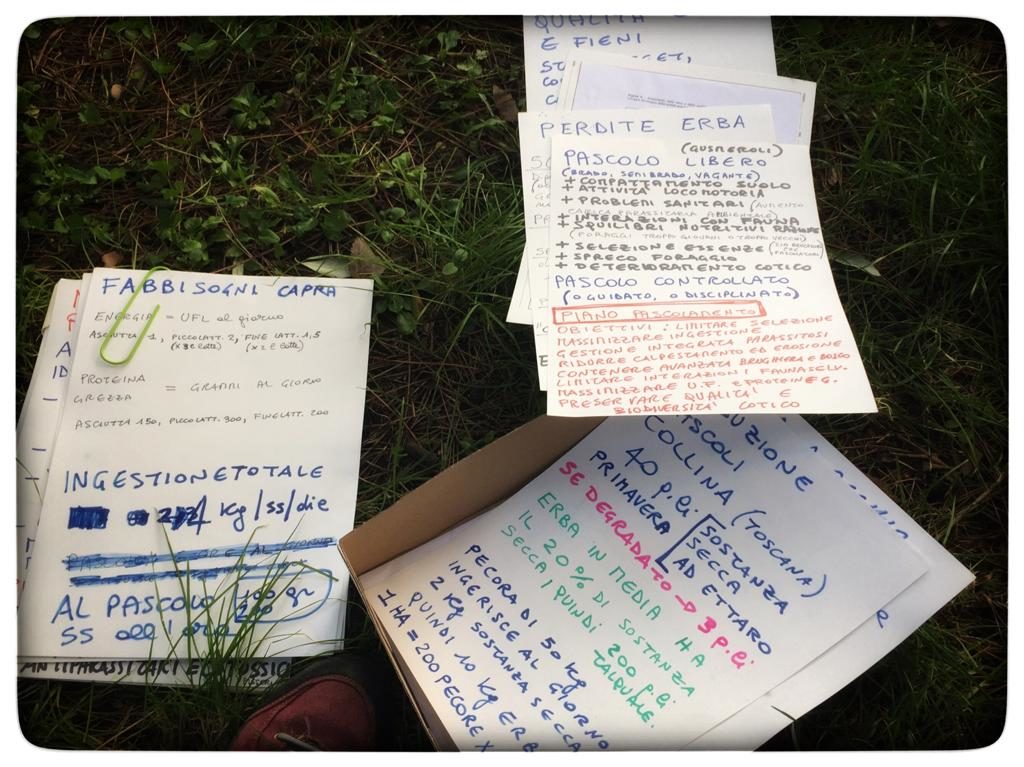 FABBISOGNI CAPRA
ENERGIA = UFL al giorno
ASCIUTTA 1, PICCO LATT. 2, FINE LATT. 1,5
PROTEINA = GRAMMI AL GIORNO
GREZZA
ASCIUTTA 150, PICCO LATT. 300, FINE LATT. 200
INGESTIONE TOTALE
Kg/ss/die
AL PASCOLO
SS all'ora
ANTIPARASSITARI
QUALITÀ
E FIENI
PERDITE ERBA
(GUSMEROLI)
PASCOLO LIBERO
(BRADO, SEMIBRADO, VAGANTE)
+ COMPATTAMENTO SUOLO
+ ATTIVITÀ LOCOMOTORIA
+ PROBLEMI SANITARI (AUMENTO
CARICA PARASSITARIA AMBIENTALE)
± INTERAZIONI CON FAUNA
+ SQUILIBRI NUTRITIVI RAZIONE
(FORAGGI TROPPO GIOVANI O TROPPO VECCHI)
+ SELEZIONE ESSENZE
+ SPRECO FORAGGIO
+ DETERIORAMENTO COTICO
PASCOLO CONTROLLATO
(O GUIDATO, O DISCIPLINATO)
PIANO PASCOLAMENTO
OBIETTIVI: LIMITARE SELEZIONE
MASSIMIZZARE INGESTIONE
GESTIONE INTEGRATA PARASSITOSI
RIDURRE CALPESTAMENTO ED EROSIONE
CONTENERE AVANZATA BRUGHIERA E BOSCO
LIMITARE INTERAZIONI FAUNA SELV.
MASSIMIZZARE U.F. E PROTEINE G.
PRESERVARE QUALITÀ E
BIODIVERSITÀ COTICO
UZIONE
PASCOLI
COLLINA (TOSCANA)
40 p.li SOSTANZA
PRIMAVERA SECCA
AD ETTARO
SE DEGRADATO → 3 p.li
ERBA IN MEDIA HA
IL 20% DI SOSTANZA
SECCA QUINDI 200 p.li
TALQUALE.
PECORA DI 50 KG
INGERISCE AL GIORNO
2 KG SOSTANZA SECCA
QUINDI 10 KG ERB
1 HA = 200 PECORE X